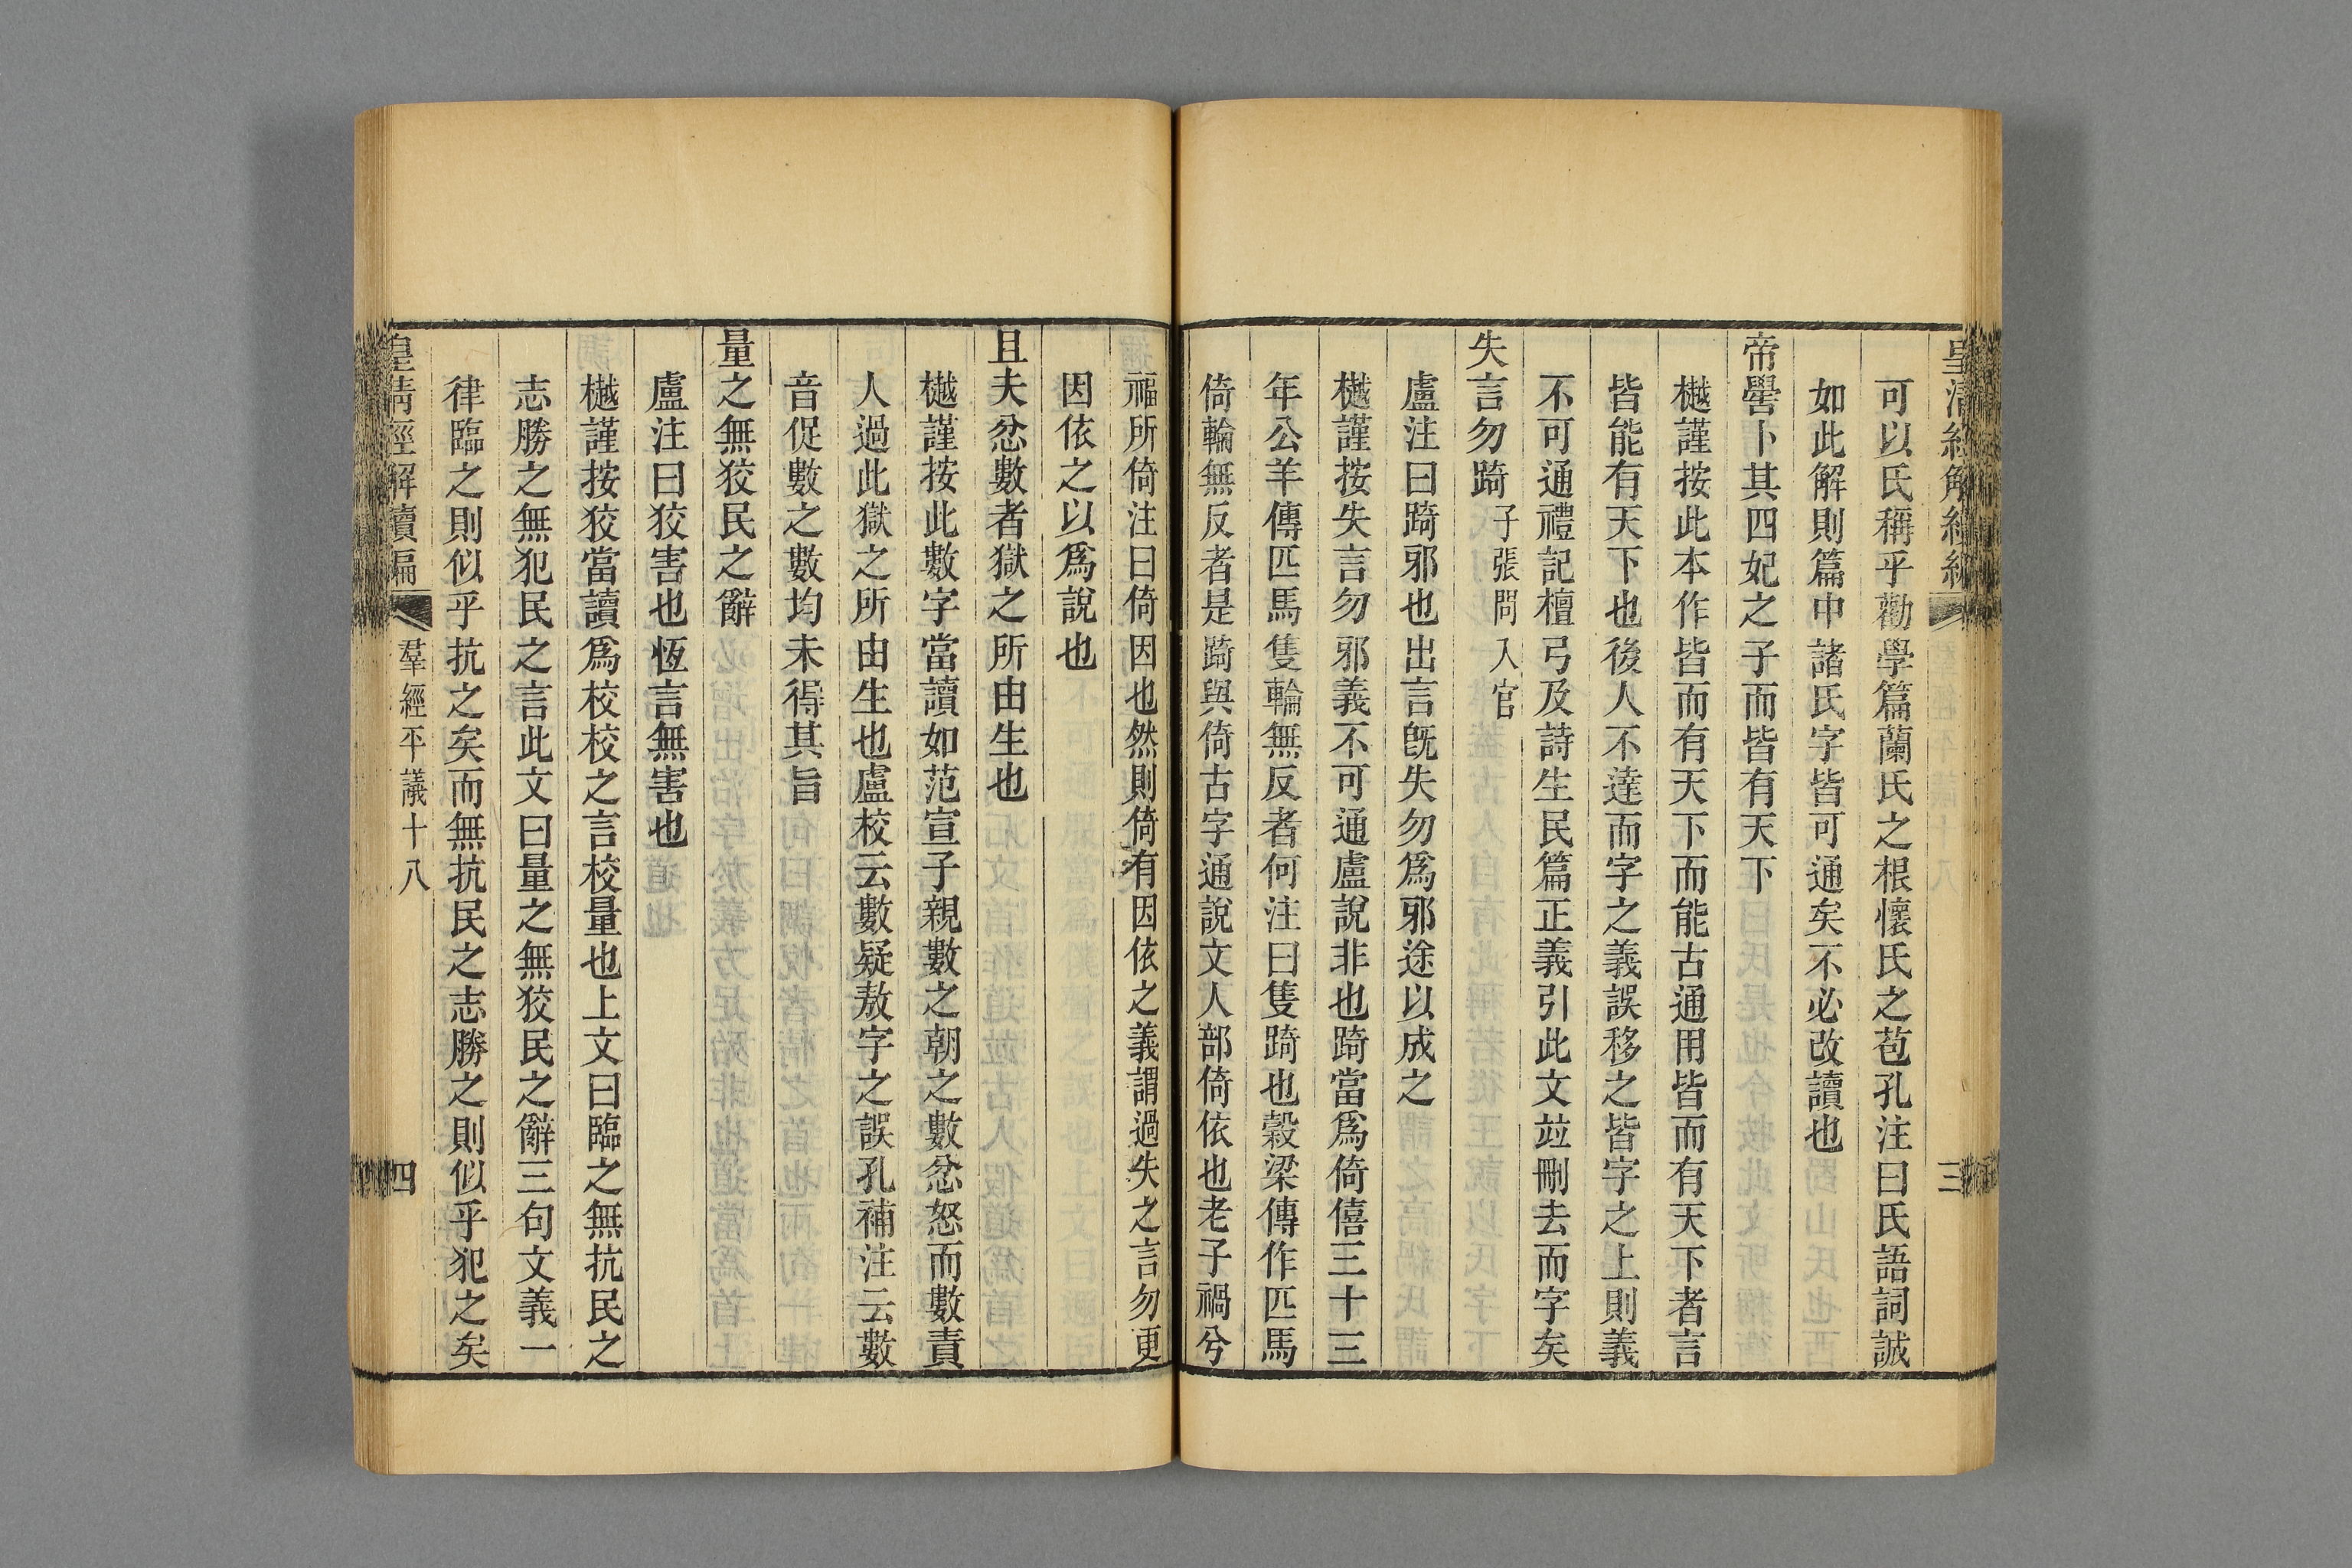 可以氏稱乎勸學篇蘭氏之根懷氏之苞孔注曰氏語詞誠
如此解則篇中諸氏字皆可通矣不必改讀也
帝嚳卜其四妃之子而皆有天下
樾謹按此本作皆而有天下而能古通用皆而有天下者言
皆能有天下也後人不達而字之義誤移之皆字之上則義
不可通禮記檀弓及詩生民篇正義引此文竝刪去而字矣
失言勿踦 子張問入官
盧注曰踦邪也出言旣失勿爲邪途以成之
樾謹按失言勿邪義不可通盧說非也踦當爲倚僖三十三
年公羊傳匹馬隻輪無反者何注曰隻踦也穀梁傳作匹馬
倚輪無反者是踦與倚古字通說文人部倚依也老子禍兮
福所倚注曰倚因也然則倚有因依之義謂過失之言勿更
因依之以爲說也
且夫忿數者獄之所由生也
樾謹按此數字當讀如范宣子親數之朝之數忿怒而數責
人過此獄之所由生也盧校云數疑敖字之誤孔補注云數
音促數之數均未得其旨
量之無狡民之辭
盧注曰狡害也恆言無害也
樾謹按狡當讀爲校校之言校量也上文曰臨之無抗民之
志勝之無犯民之言此文曰量之無狡民之辭三句文義一
律臨之則似乎抗之矣而無抗民之志勝之則似乎犯之矣
皇清經解續編
羣經平議十八
四